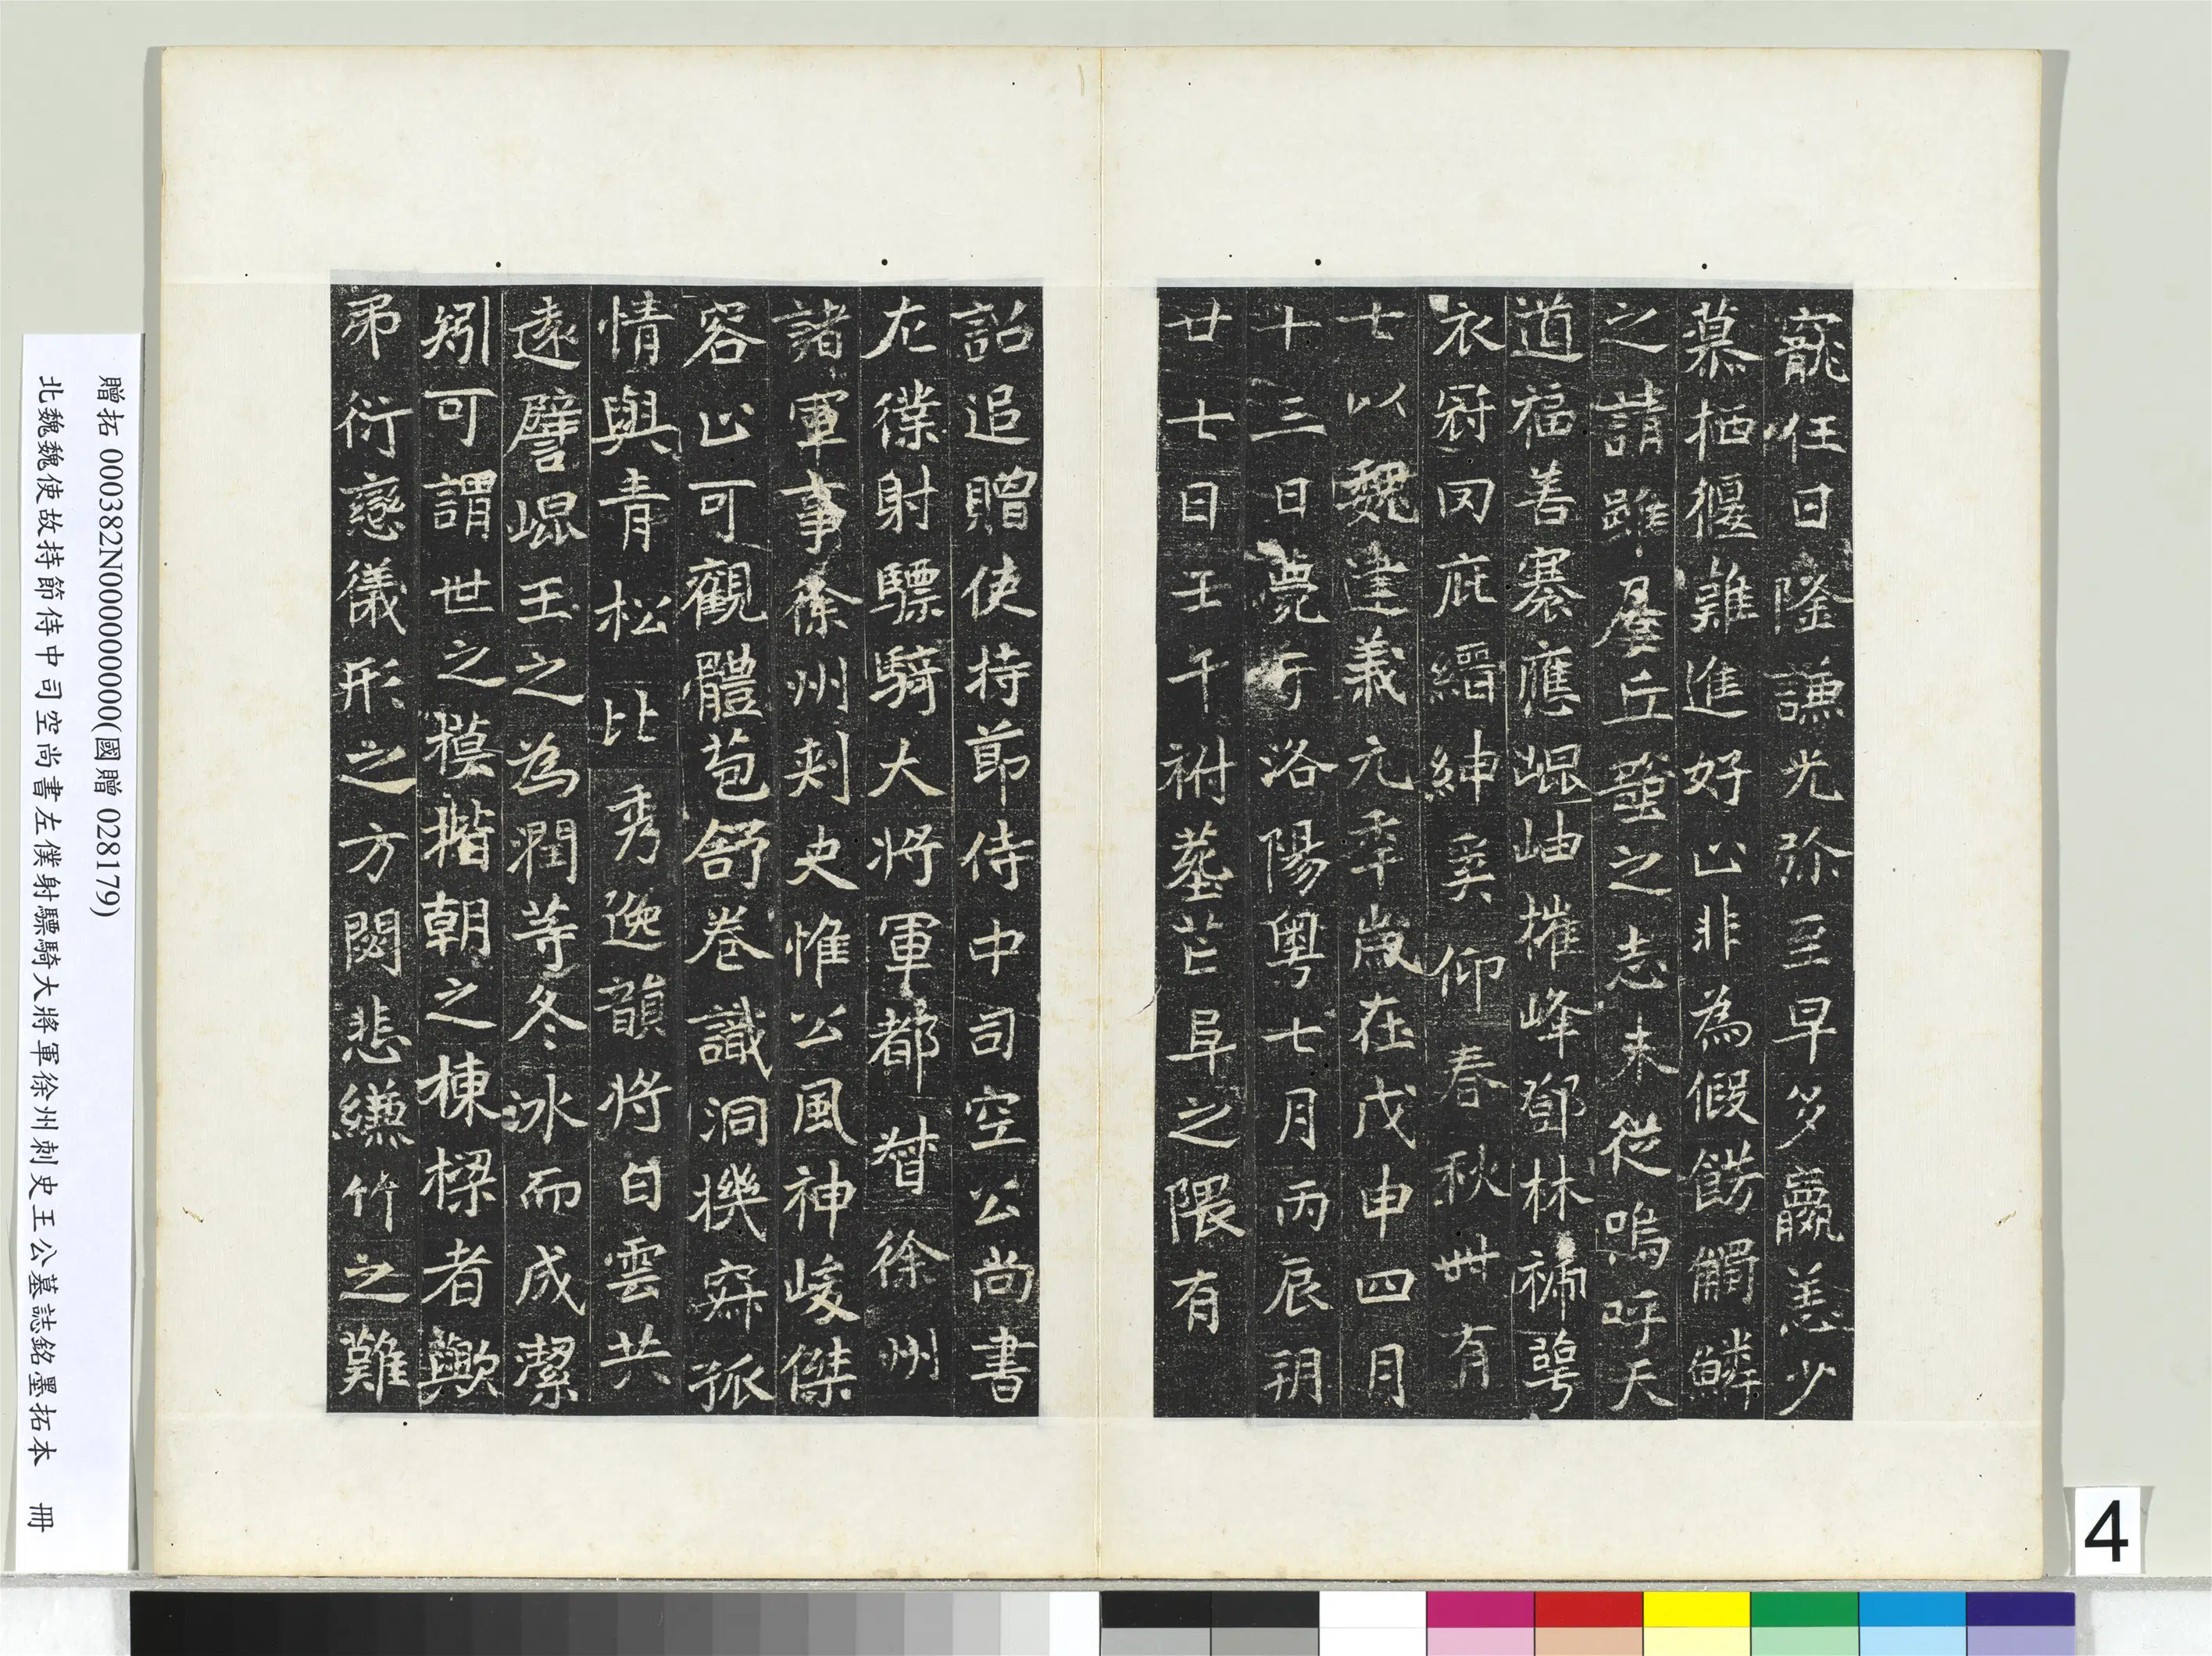 寵任日隆謙光弥至早多羸恙少
慕栖偃難進好止非為假餝觸鱗
之請雖屢丘壑之志未從嗚呼天
道福善褰應崐岫摧峰鄧林褫萼
衣冠罔庇縉紳奚仰春秋卌有
七以魏建義元年歲在戊申四月
十三日薨于洛陽粵七月丙辰朔
廿七日壬午祔塟芒阜之隈有
詔追贈使持節侍中司空公尚書
左僕射驃騎大將軍都督徐州
諸軍事徐州刾史惟公風神峻傑
容止可觀體苞舒卷識洞機寀孤
情與青松比秀逸韻將白雲共
遠譬崐玉之為潤等冬冰而成潔
矧可謂世之模揩朝之棟樑者歟
弟衍戀儀形之方閟悲縑竹之難
贈拓 000382N000000000(國贈 028179)
北魏魏使故持節侍中司空尚書左僕射驃騎大將軍徐州刺史王公墓誌銘墨拓本 冊
4